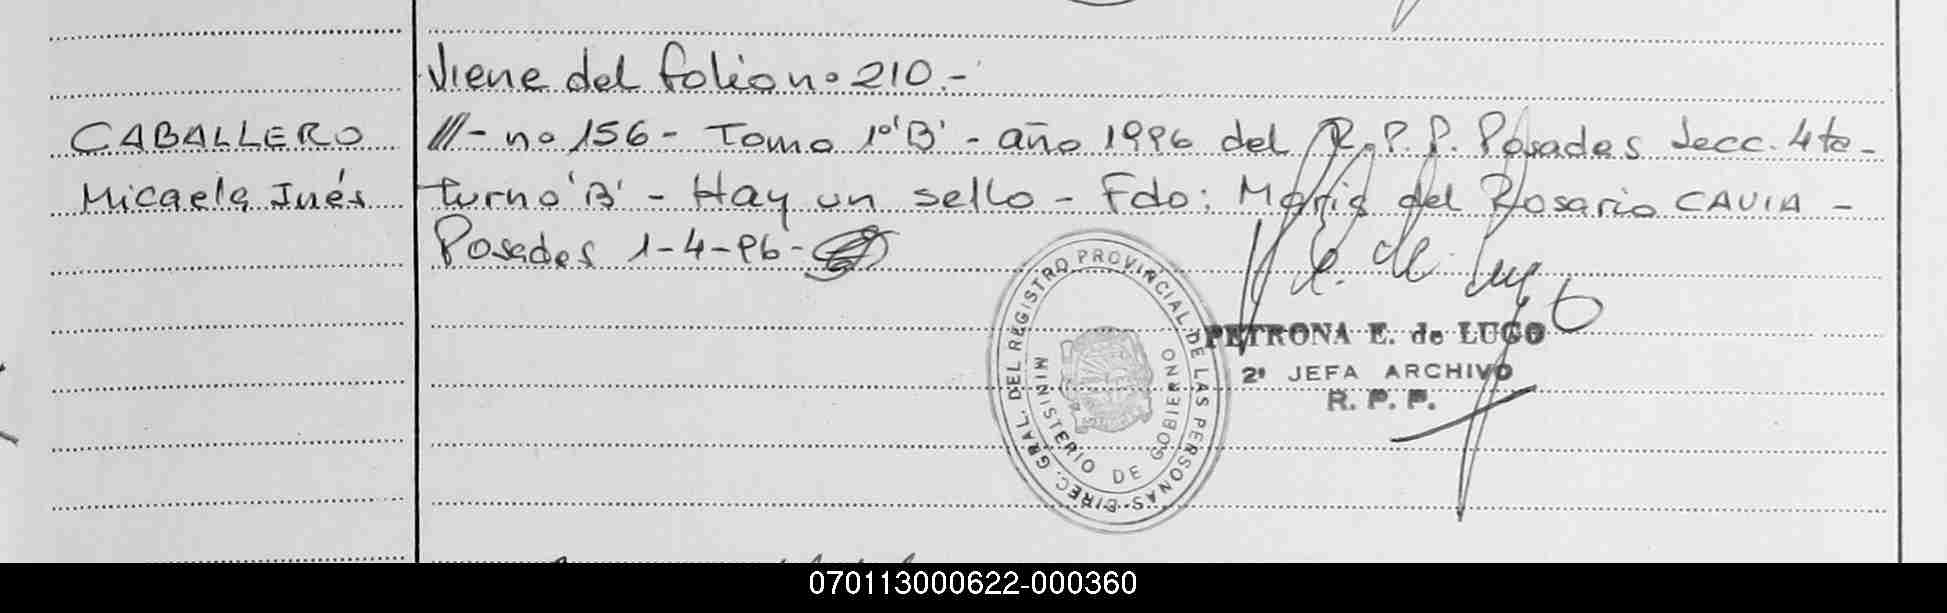 Viene del folio nº 210.-
CABALLERO
Micaela Inés
///- nº 156 - Tomo 1º 'B' - año 1996 del R.P.P. Posadas Secc. 4ta -
turno 'B' - Hay un sello - Fdo: María del Rosario CAVIA -
Posadas 1-4-96 -
DIREC. GRAL. DEL REGISTRO PROVINCIAL DE LAS PERSONAS
MINISTERIO DE GOBIERNO
PETRONA E. de LUGO
2ª JEFA ARCHIVO
R. P. P.
070113000622-000360